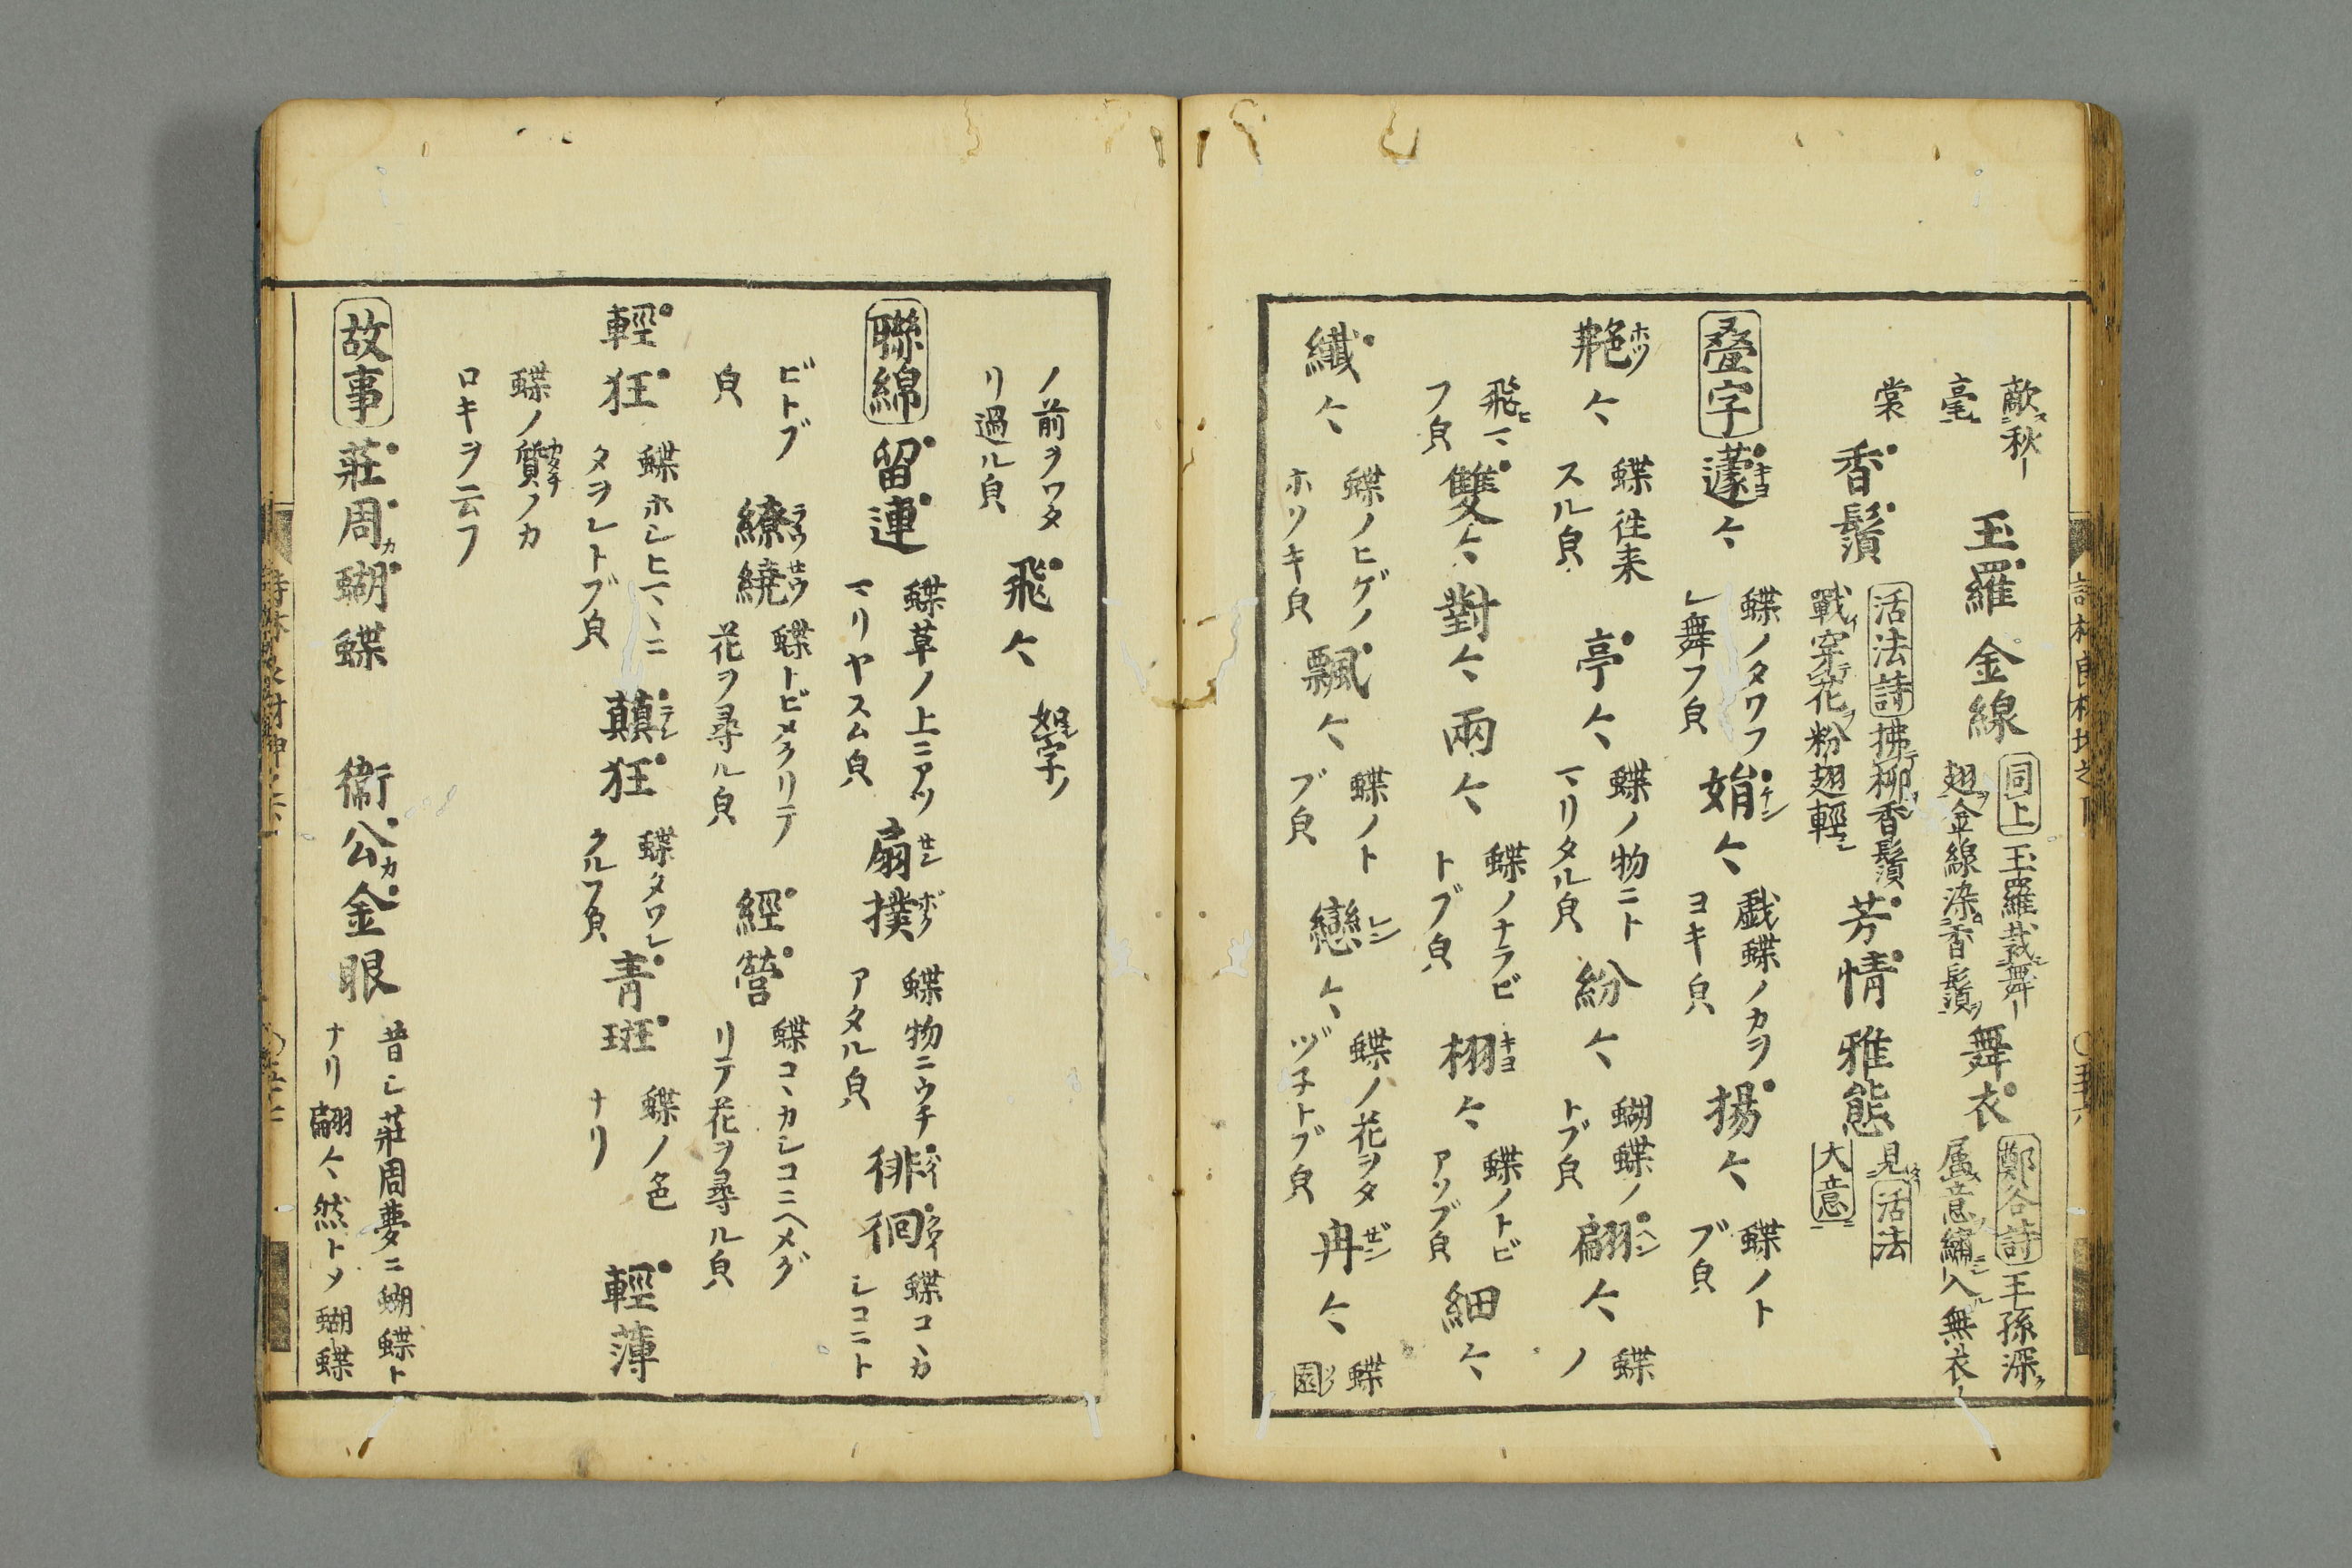 敵秋
毫
玉羅
金線
同上
玉羅裁舞
翅金線染香鬚
舞衣
鄭谷詩
王孫深
属意繡入無衣
裳
香鬚
活法詩
拂柳香鬚
戰穿花粉翅輕
芳情
雅態
見活法
大意
叠字
蘧〻
蝶ノタワフ
レ舞フ皃
娟〻
戯蝶ノカヲ
ヨキ皃
揚〻
蝶ノト
ブ皃
艴〻
蝶往来
スル皃
亭〻
蝶ノ物ニト
マリタル皃
紛〻
蝴蝶ノ
トブ皃
翩〻
蝶
ノ
飛
フ皃
雙〻
對〻
兩〻
蝶ノナラビ
トブ皃
栩〻
蝶ノトビ
アソブ皃
細〻
纎〻
蝶ノヒゲノ
ホソキ皃
飄〻
蝶ノト
ブ皃
戀〻
蝶ノ花ヲタ
ヅネトブ皃
冉〻
蝶
園
ノ前ヲワタ
リ過ル皃
飛〻
如字
聯綿
留連
蝶草ノ上ニアツ
マリヤスム皃
扇撲
蝶物ニウチ
アタル皃
徘徊
蝶コヽカ
シコニト
ビトブ
皃
繚繞
蝶トビメクリテ
花ヲ尋ル皃
經營
蝶コヽカシコニヘメグ
リテ花ヲ尋ル皃
輕狂
蝶ホシヒマヽニ
タヲレトブ皃
顛狂
蝶タワレ
クルフ皃
青斑
蝶ノ色
ナリ
輕薄
蝶ノ質ノカ
ロキヲ云フ
故事
莊周蝴蝶
衞公金眼
昔シ莊周夢ニ蝴蝶ト
ナリ翩〻然トメ蝴蝶